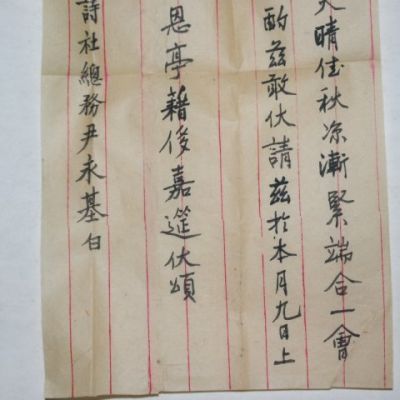 天晴佳秋凉漸緊端合一會
酌茲敢伏請茲於本月九日上
恩亭藉俊嘉筵伏頌
詩社總務尹永基白